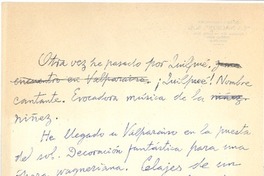 Otra vez he pasado por Quilpué.
encuentro en Valparaíso. ¡Quilpué! Nombre
cantante. Evocadora música de la niñez
niñez.
He llegado a Valparaíso en la puesta
del sol. Decoración fantástica para una
ópera wagneriana. Celajes de un